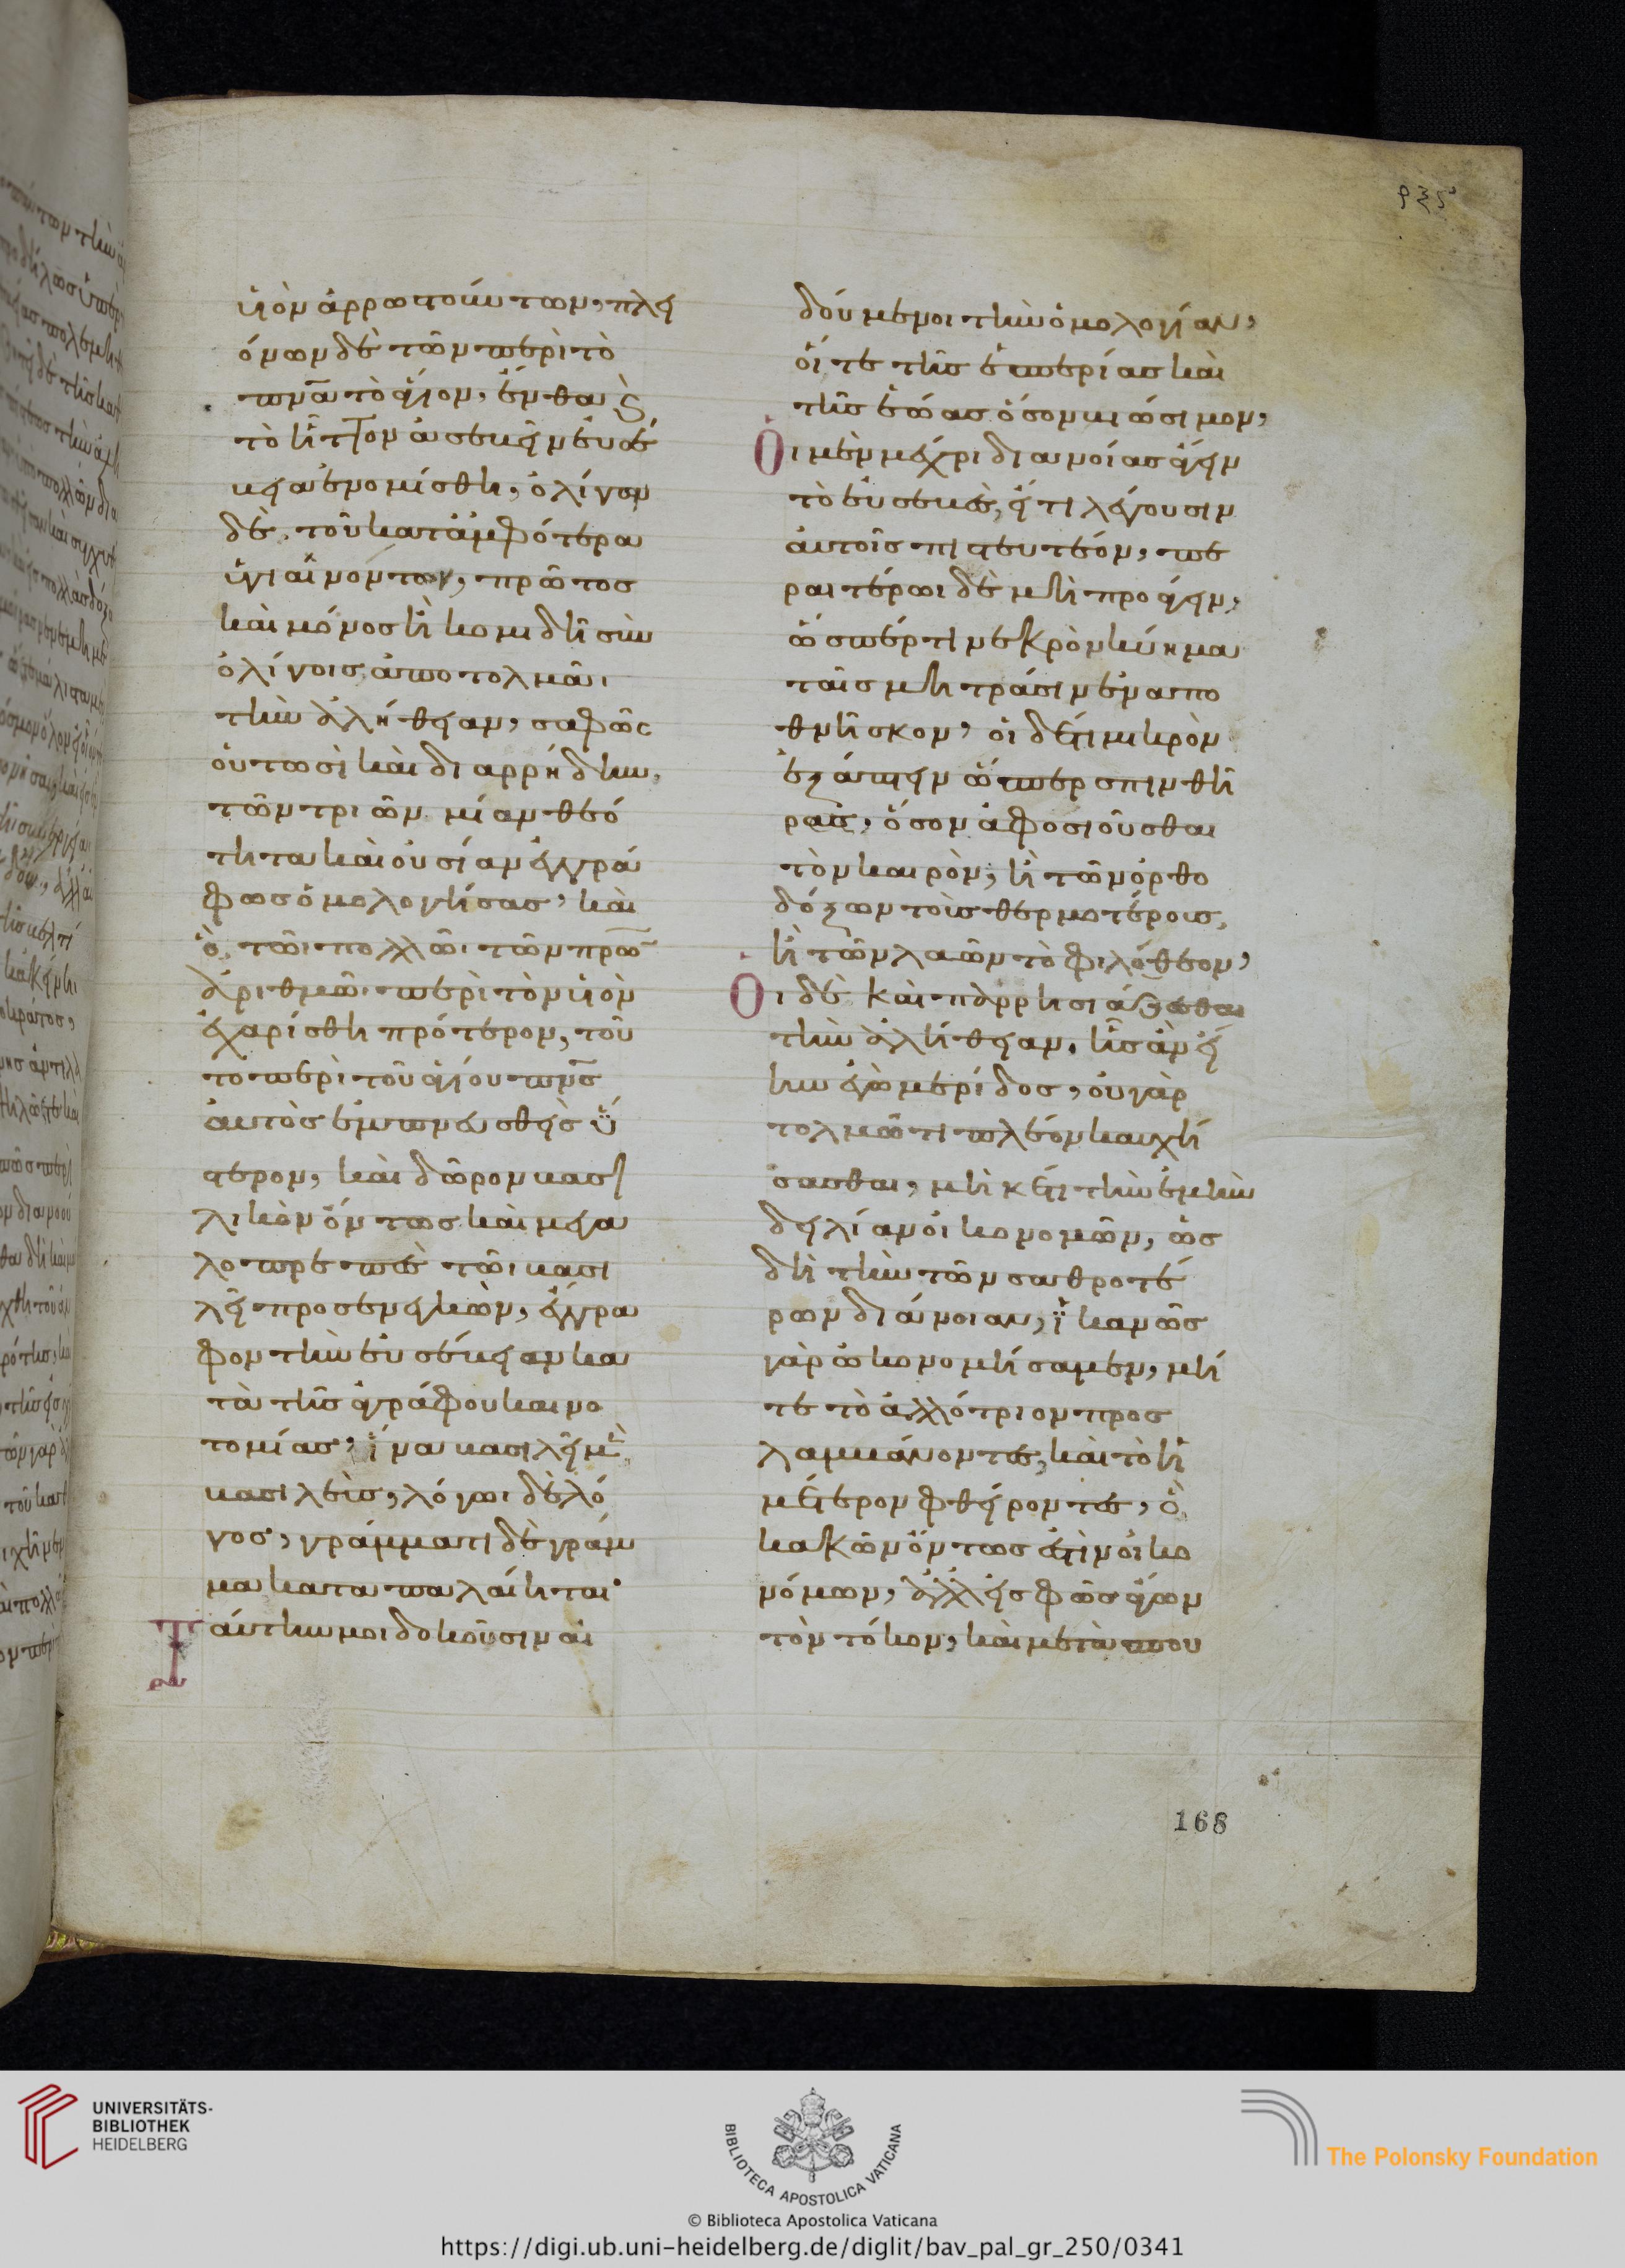 ρξϛ
υἱὸν ἀρρωστούντων, πλει
όνων δὲ τῶν περὶ τὸ
πνᾶ τὸ ἅγιον, ἔνθα καὶ
τὸ ἧττον ἀσεβεῖν εὐσέ
βεια ἐνομίσθη, ὀλίγου
δὲ τοῦ κατἀμφότερα
ὑγιαίνοντος, πρῶτος
καὶ μόνος ἢ κομιδῆ σὺν
ὀλίγοις ἀποτολμᾶι
τὴν ἀλήθειαν, σαφῶς
οὑτωσὶ καὶ διαρρήδην,
τῶν τριῶν μίαν θεό
τητα καὶ οὐσίαν ἐγγρά
φως ὁμολογήσας, καὶ
ὃ τῶι πολλῶι τῶν πρω̅
ἀριθμῶι περὶ τὸν υἱὸν
ἐχαρίσθη πρότερον, τοῦ
το περὶ τοῦ ἁγίου πν̅ς
αὐτὸς ἐμπνευσθεὶς ὕ
στερον, καὶ δῶρον βασι
λικὸν ὄντως καὶ μεγα
λοπρεπὲς τῶι βασι
λεῖ προσενεγκὼν, ἔγγρα
φον τὴν εὐσέβειαν κα
τὰ τῆς ἀγράφου καινο
τομίας, ἵνα βασιλεῖ μὲν
βασιλεὺς, λόγωι δὲ λό
γος, γράμματι δὲ γράμ
μα καταπαλαίηται·
Ταύτην μοι δοκοῦσιν αἰ
δούμενοι τὴν ὁμολογίαν,
οἵ τε τῆς ἑσπερίας καὶ
τῆς ἑώας ὅσον βιώσιμον,
Οἱ μὲν μέχρι διανοίας ἄγειν
τὸ εὐσεβὲς, εἴ τι λέγουσιν
αὐτοῖς πιστευτέον, πε
ραιτέρωι δὲ μὴ προάγειν,
ὥσπερ τι νεκρὸν κύημα
ταῖς μήτρασιν ἐναπο
θνῆσκον, οἱ δέ τι μικρὸν
ἐξάπτειν ὥσπερ σπινθῆ
ρας, ὅσον ἀφοσιοῦσθαι
τὸν καιρὸν, ἢ τῶν ὀρθο
δόξων τοὺς θερμοτέρους,
ἢ τῶν λαῶν τὸ φιλόθεον,
Οἱ δὲ καὶ παρρησιάζεσθαι
τὴν ἀλήθειαν, ἧς ἂν εἴ
ην ἐγὼ μερίδος, οὐ γὰρ
τολμῶ τι πλέον καυχή
σασθαι, μηκέτι τὴν ἐμὴν
δειλίαν οἰκονομῶν, ὡς
δὴ τὴν τῶν σαθροτέ
ρων διάνοιαν, ἱκανῶς
γὰρ ὠικονομήσαμεν, μή
τε τὸ ἀλλότριον προσ
λαμβάνοντες, καὶ τὸ ἡ
μέτερον φθείροντες, ὃ
κακῶν ὄντως ἐστὶν οἰκο
νόμων, ἀλλεἰς φῶς ἄγων
τὸν τόκον, καὶ μετὰ σπου
168
UNIVERSITÄTS-
BIBLIOTHEK
HEIDELBERG
BIBLIOTECA APOSTOLICA VATICANA
The Polonsky Foundation
© Biblioteca Apostolica Vaticana
https://digi.ub.uni-heidelberg.de/diglit/bav_pal_gr_250/0341